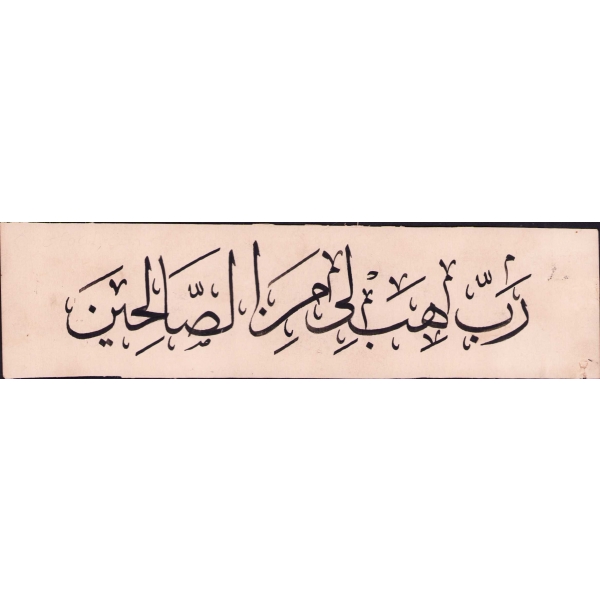 رَبِّ هَبْ لِى مِنَ الصَّالِحِينَ